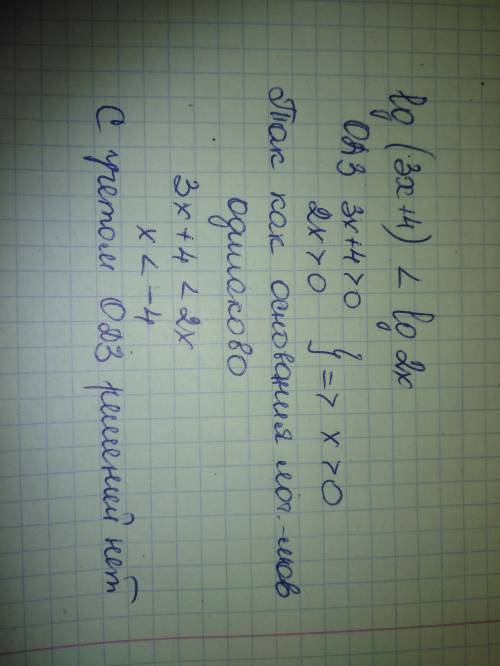 lg (3x+4) < lg 2x
ОДЗ 3x+4>0
2x>0 } => x>0
Так как основания лог-мов
одинаково
3x+4 < 2x
x < -4
С учетом ОДЗ решений нет